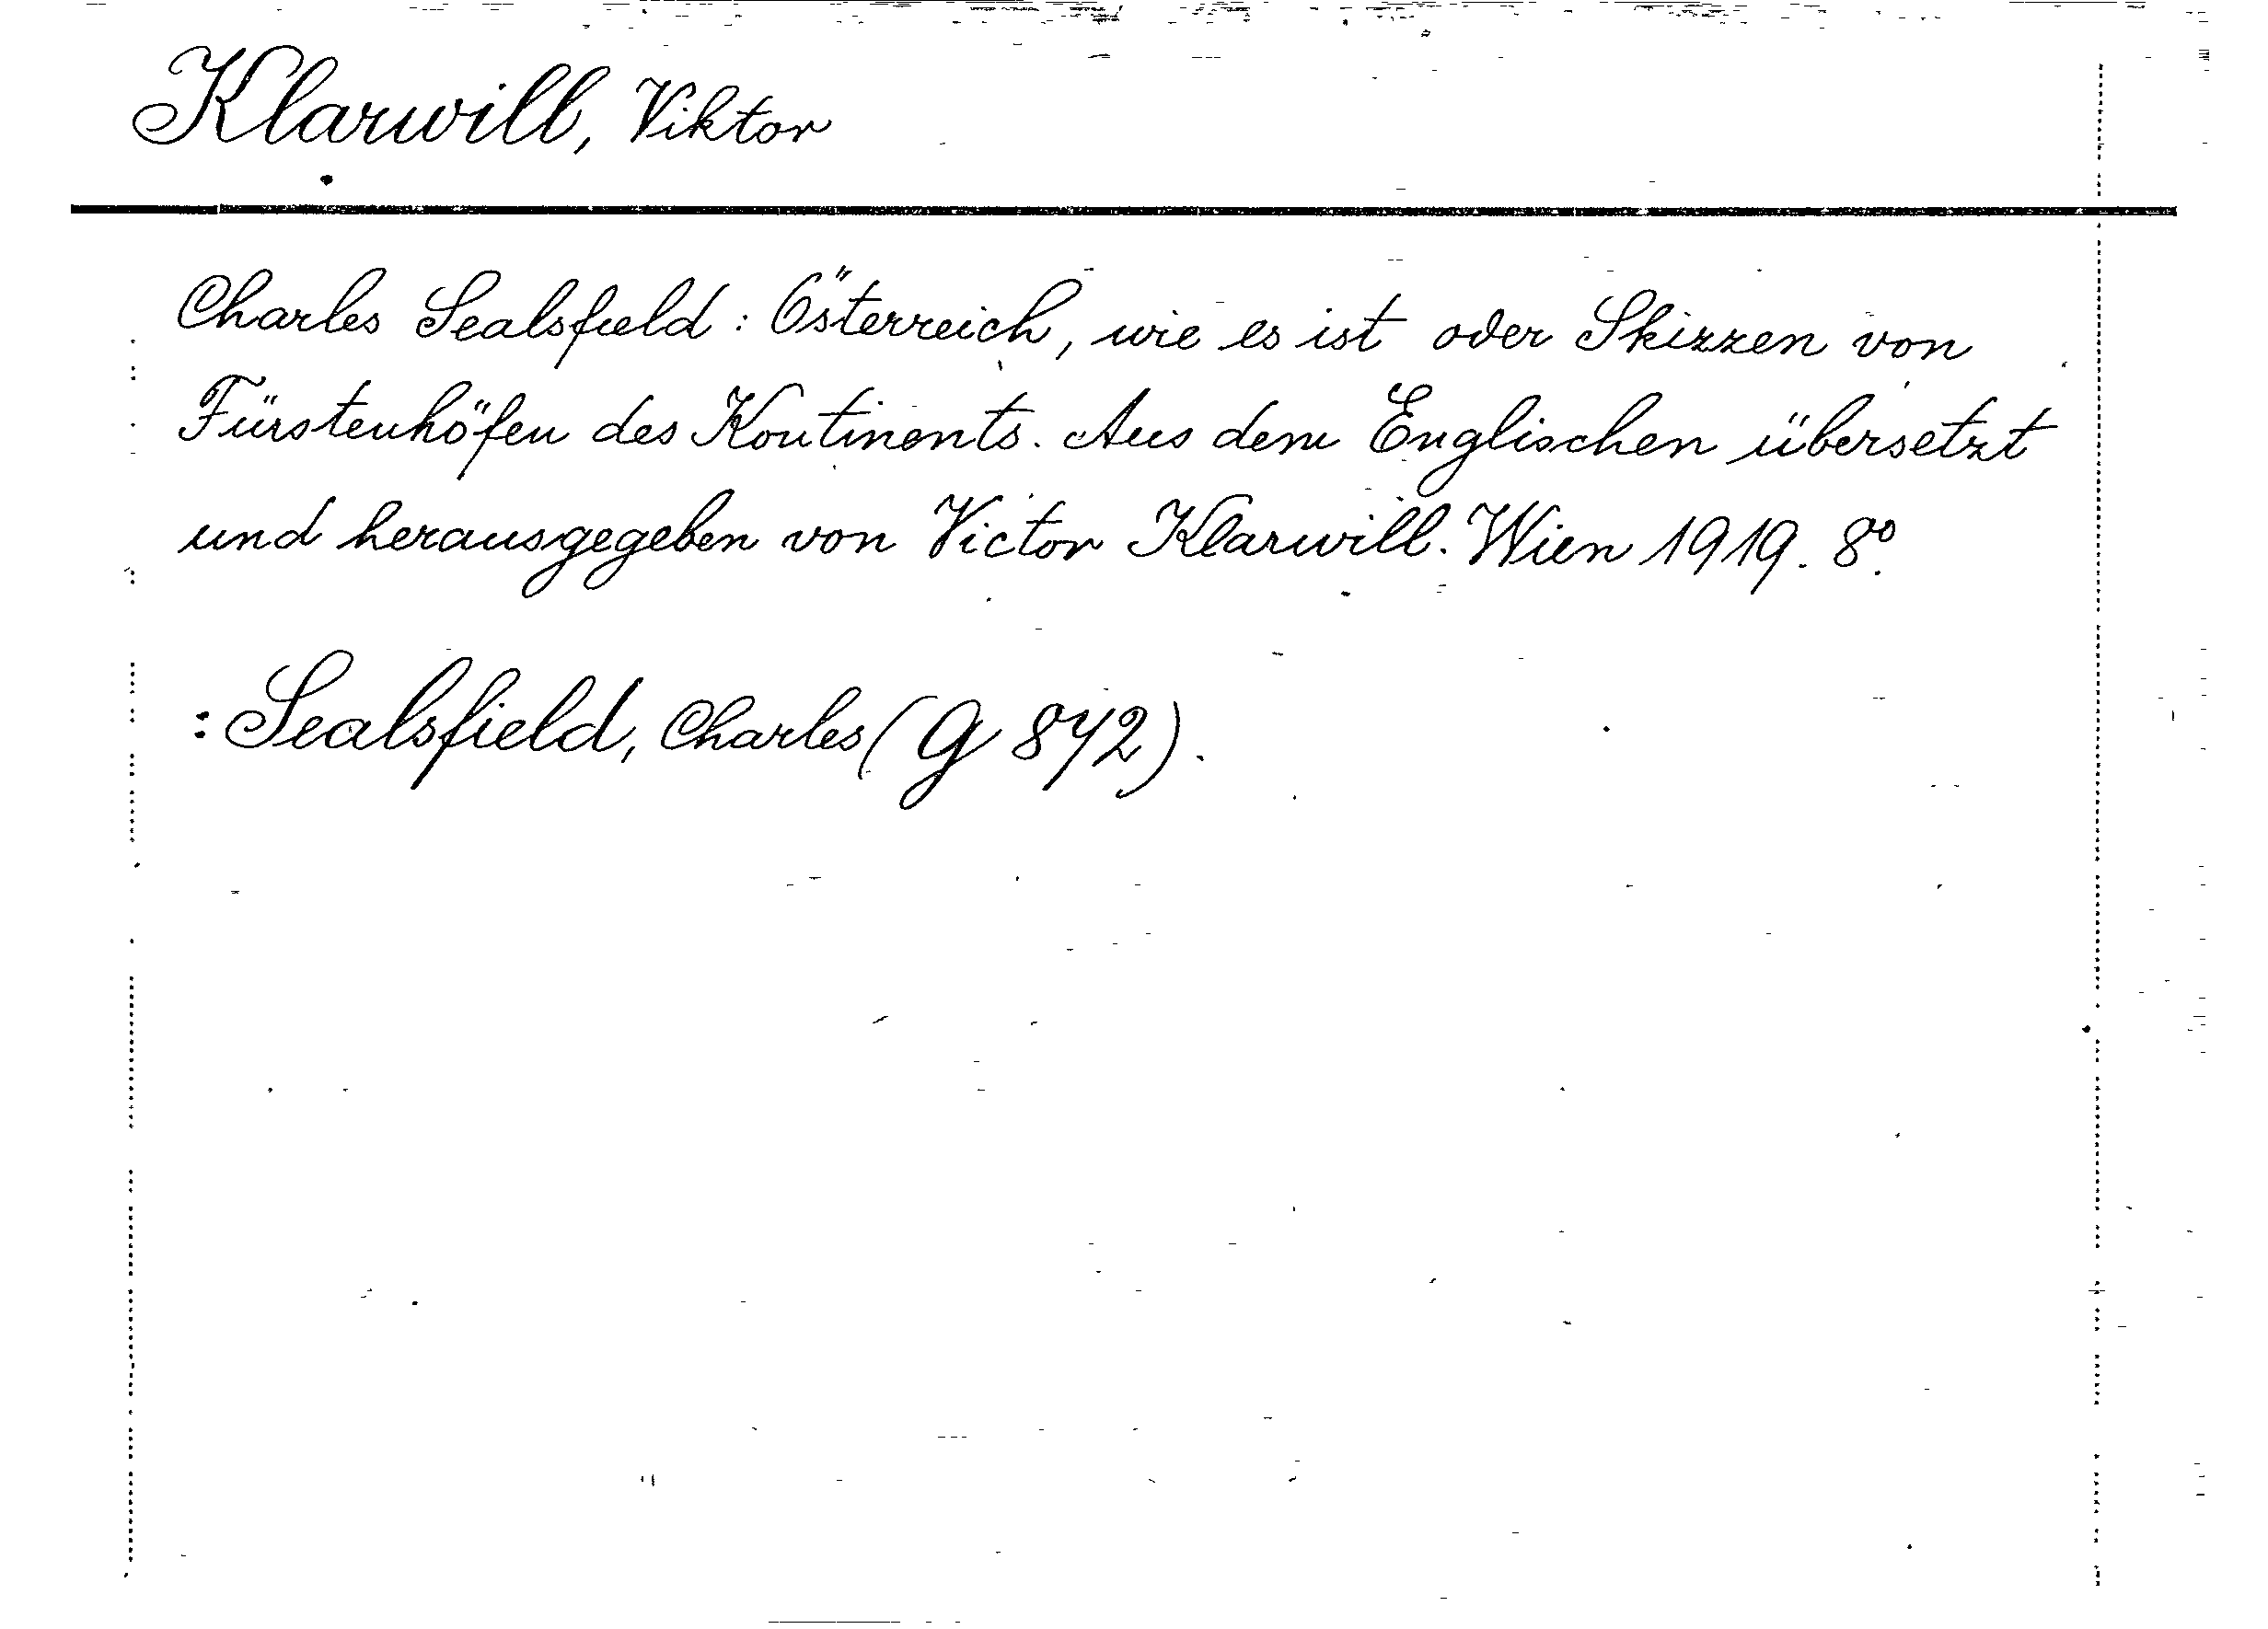 Klarwill, Viktor
Charles Sealsfield: Österreich, wie es ist oder Skizzen von
Fürstenhöfen des Kontinents. Aus dem Englischen übersetzt
und herausgegeben von Victor Klarwill. Wien 1919. 8º.
: Sealsfield, Charles (G 842).